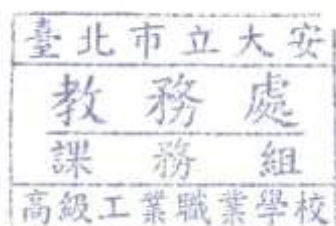 臺北市立大安
教務處
課務組
高級工業職業學校